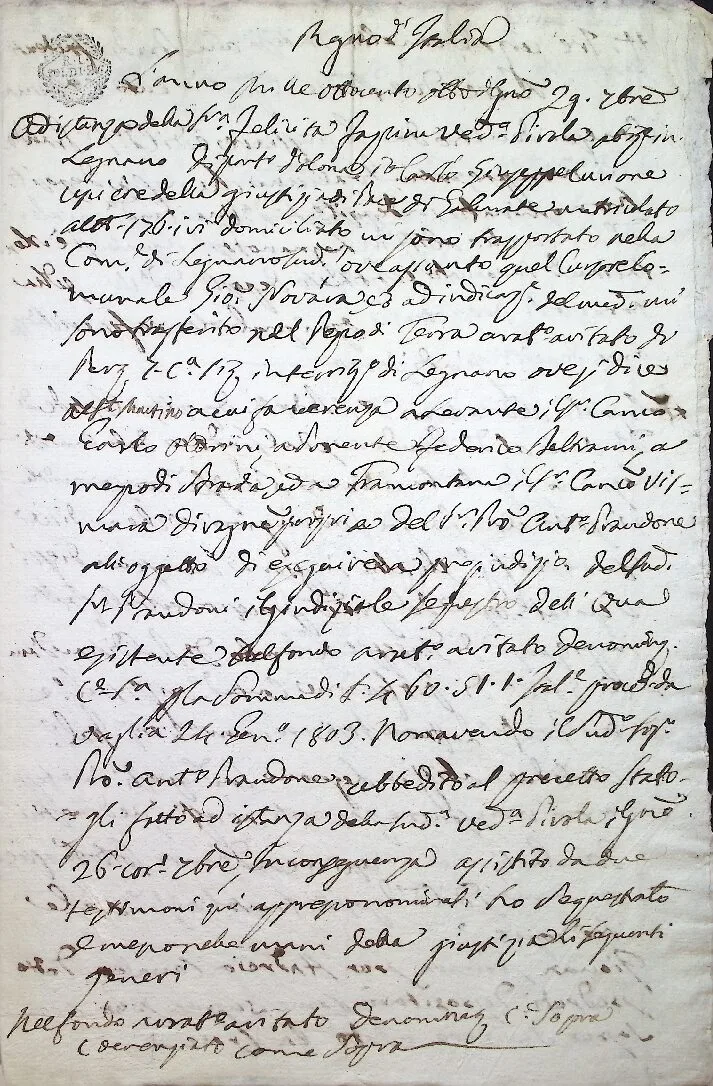 Regno d'Italia
L'anno Mille ottocento otto il Gne 29. 7bre
Ad istanza della Sra Felicita Ved.a Pirola abit. in
Legnano Dipart.o d'Olona, io Carlo Giuseppe
usciere della giustizia di Pace di Gallarate matricolato
all N.o 176. ivi domiciliato mi sono trasportato nella
Com.e di Legnano sud.o ove assunto quel Cursore Co=
munale Gio. Novara ed ad indicaz.e del med.o mi
sono trasferito nel Pezzo di Terra arat.o avitato di
Pert. 7. C.a in territ.o di Legnano ove si dice
al S. Martino a cui fa coerenza a Levante il Sr. Canco
Carlo Oldrini, a Ponente Federico Beltrami, a
mezzodì Strada, ed a Tramontana il Sr. Canco Vis=
mara di ragne propria del Sr. Ant.o Prandone
all'oggetto di eseguire a pregiudizio del sud.
Prandoni il giudiziale sequestro dell' Uva
esistente nel fondo arat.o avitato denoming.
C.e S.a p la Somma di £ 460. 51. 1. Ital.e proced.a da
24. Gen.o 1803. Non avendo il Sud.o Sig.r
Ant.o Prandone ubbedito al precetto Stato-
gli fatto ad istanza della sud.a Ved.a Pirola il Gne
26. cor.e 7bre, In conseguenza assistito da due
testimoni qui appresso nominati ho Sequestrato
e messo nelle mani della giustizia li seguenti
generi
Nel fondo arat.o avitato denominaz. C.e Sopra
Coerenziato come Sopra